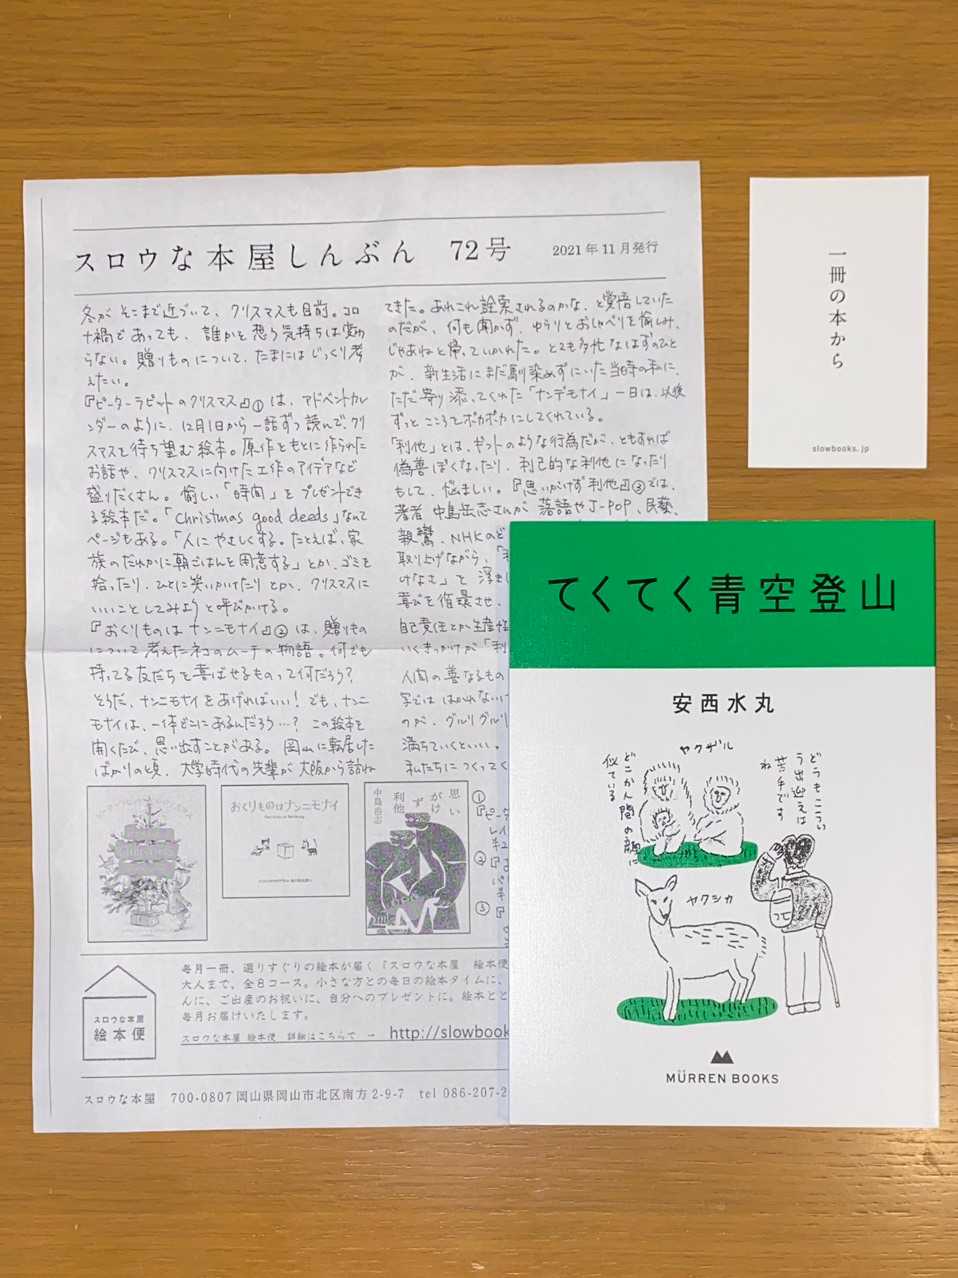 スロウな本屋しんぶん 72号 2021年11月発行
冬がそこまで近づいて、クリスマスも目前。コロ
ナ禍であっても、誰かを想う気持ちは変わ
らない。贈りものについて、たまにはじっくり考
えたい。
『ピーターラビットのクリスマス』①は、アドベントカレ
ンダーのように、12月1日から一話ずつ読んで、クリ
スマスを待ち望む絵本。原作をもとに作られた
お話や、クリスマスに向けた工作のアイデアなど
盛りだくさん。愉しい「時間」をプレゼントでき
る絵本だ。「Christmas good deeds」なんて
ページもある。「人にやさしくする。たとえば、家
族のだれかに朝ごはんを用意する」とか、ゴミを
拾ったり、ひとに笑いかけたりとか、クリスマスに
いいことしてみようと呼びかける。
『おくりものはナンニモナイ』②は、贈りもの
について考えたネコのムーチの物語。何でも
持ってる友だちを喜ばせるものって何だろう?
そうだ、ナンニモナイをあげればいい!でも、ナンニ
モナイは、一体どこにあるんだろう…?この絵本を
開くたび、思い出すことがある。岡山に転居した
ばかりの頃、大学時代の先輩が大阪から訪ね
てきた。あれこれ詮索されるのかな、と覚悟していた
のだが、何も聞かず、ゆうらりとおしゃべりを愉しみ、
じゃあねと帰っていかれた。とても多忙なはずのひと
が、新生活にまだ馴染めずにいた当時の私に、
ただ寄り添ってくれた「ナンデモナイ」一日は、以後
ずっとこころをポカポカにしてくれている。
「利他」とは、ギフトのような行為だが、ともすれば
偽善ぽくなったり、利己的な利他になったり
もして、悩ましい。『思いがけず利他』③では、
著者 中島岳志さんが 落語やJ-POP、民藝、
親鸞、NHKのど
取り上げながら、「利
けなさ」を浮き
喜びを循環させ、
自己責任とか生産性
いくきっかけが「利
人間の善なるもの
字では はかれない
のが、グルリグルリ
満ちていくといい。
私たちにつくってく
おくりものはナンニモナイ
思いがけず利他
中島岳志
①
②
③
スロウな本屋
絵本便
毎月一冊、選りすぐりの絵本が届く『スロウな本屋 絵本便
大人まで、全8コース。小さな方との毎日の絵本タイムに、
んに、ご出産のお祝いに、自分へのプレゼントに。絵本とと
毎月お届けいたします。
スロウな本屋 絵本便 詳細はこちらで → http://slowbook
スロウな本屋 700-0807 岡山県岡山市北区南方2-9-7 tel 086-207-2
一冊の本から
slowbooks.jp
てくてく青空登山
安西水丸
ヤクザル
どこか人間の顔に
似ている
どうもこうい
う出迎えは
苦手です
ね
ヤクシカ
MÜRREN BOOKS